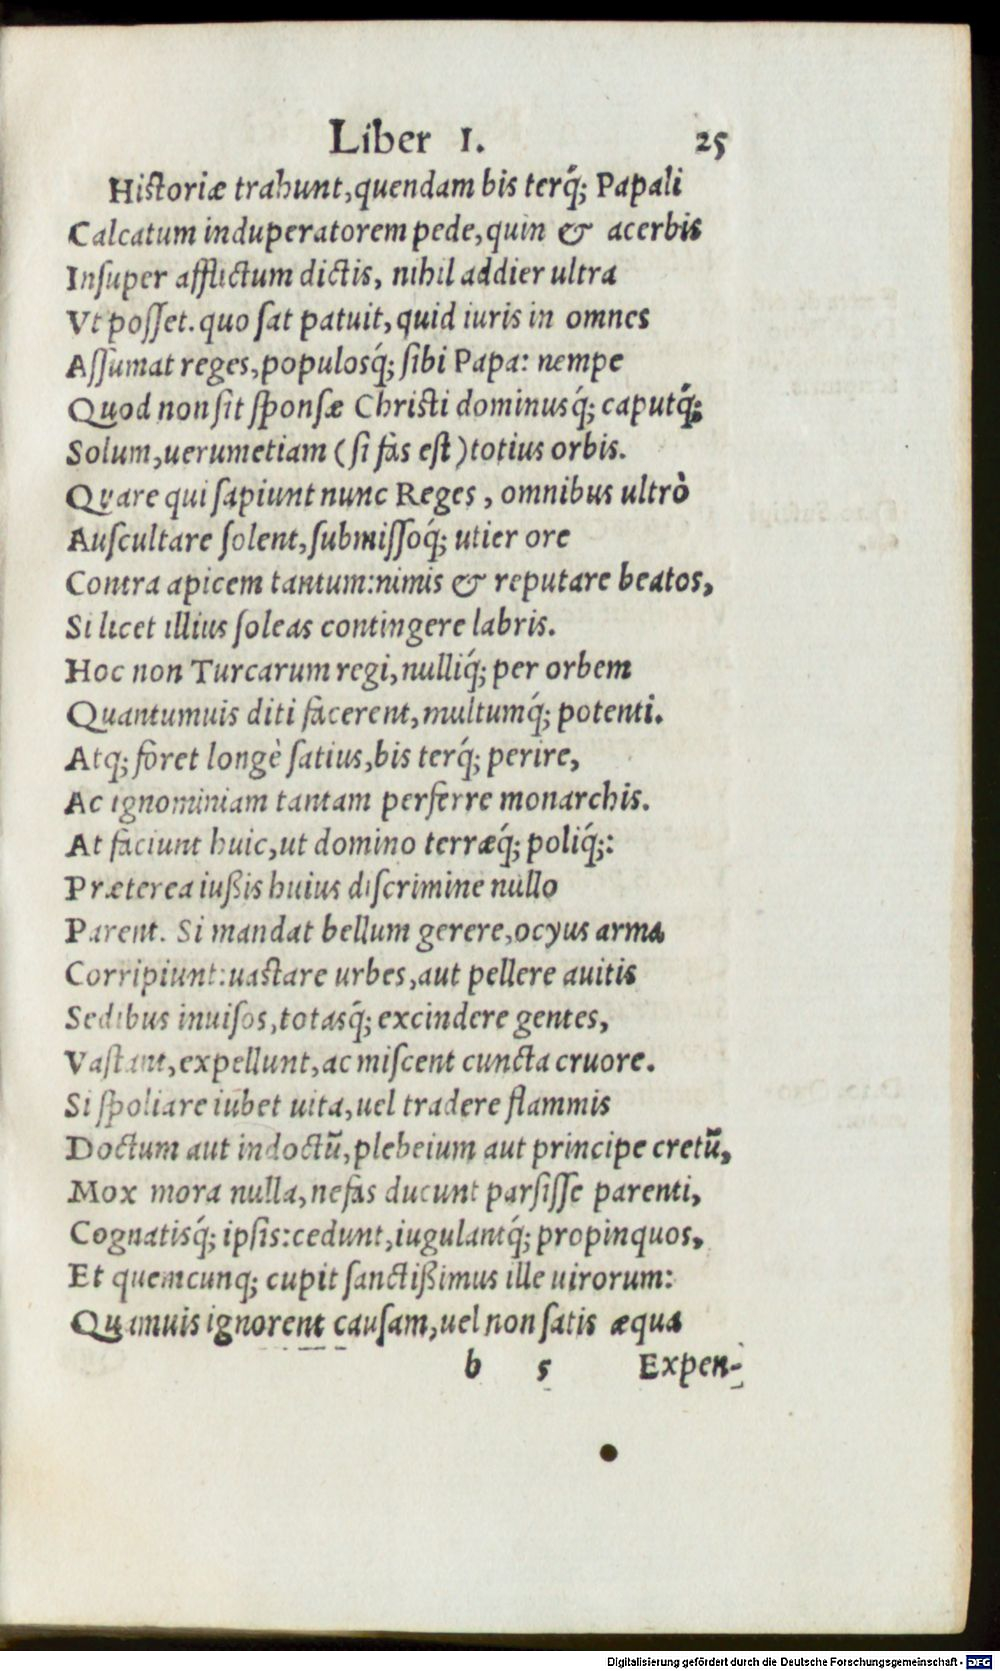 Liber I. 25
Historiæ trahunt, quendam bis terq́; Papali
Calcatum induperatorem pede, quin & acerbis
Inſuper afflictum dictis, nihil addier ultra
Vt poſſet. quo ſat patuit, quid iuris in omnes
Aſſumat reges, populosq́; ſibi Papa: nempe
Quod non ſit ſponſæ Chriſti dominusq́; caputq́;
Solum, uerumetiam (ſi fas eſt) totius orbis.
Quare qui ſapiunt nunc Reges, omnibus ultrò
Auſcultare ſolent, ſubmiſſoq́; utier ore
Contra apicem tantum: nimis & reputare beatos,
Si licet illius ſoleas contingere labris.
Hoc non Turcarum regi, nulliq́; per orbem
Quantumuis diti facerent, multumq́; potenti.
Atq; foret longè ſatius, bis terq́; perire,
Ac ignominiam tantam perferre monarchis.
At faciunt huic, ut domino terræq́; poliq́;:
Præterea iußis huius diſcrimine nullo
Parent. Si mandat bellum gerere, ocyus arma
Corripiunt: uaſtare urbes, aut pellere auitis
Sedibus inuiſos, totasq́; excindere gentes,
Vaſtant, expellunt, ac miſcent cuncta cruore.
Si ſpoliare iubet uita, uel tradere flammis
Doctum aut indoctū, plebeium aut principe cretū,
Mox mora nulla, nefas ducunt parſiſſe parenti,
Cognatisq́; ipſis: cedunt, iugulantq́; propinquos,
Et quemcunq; cupit ſanctißimus ille uirorum:
Quamuis ignorent cauſam, uel non ſatis æqua
b 5 Expen-
Digitalisierung gefördert durch die Deutsche Forschungsgemeinschaft - DFG